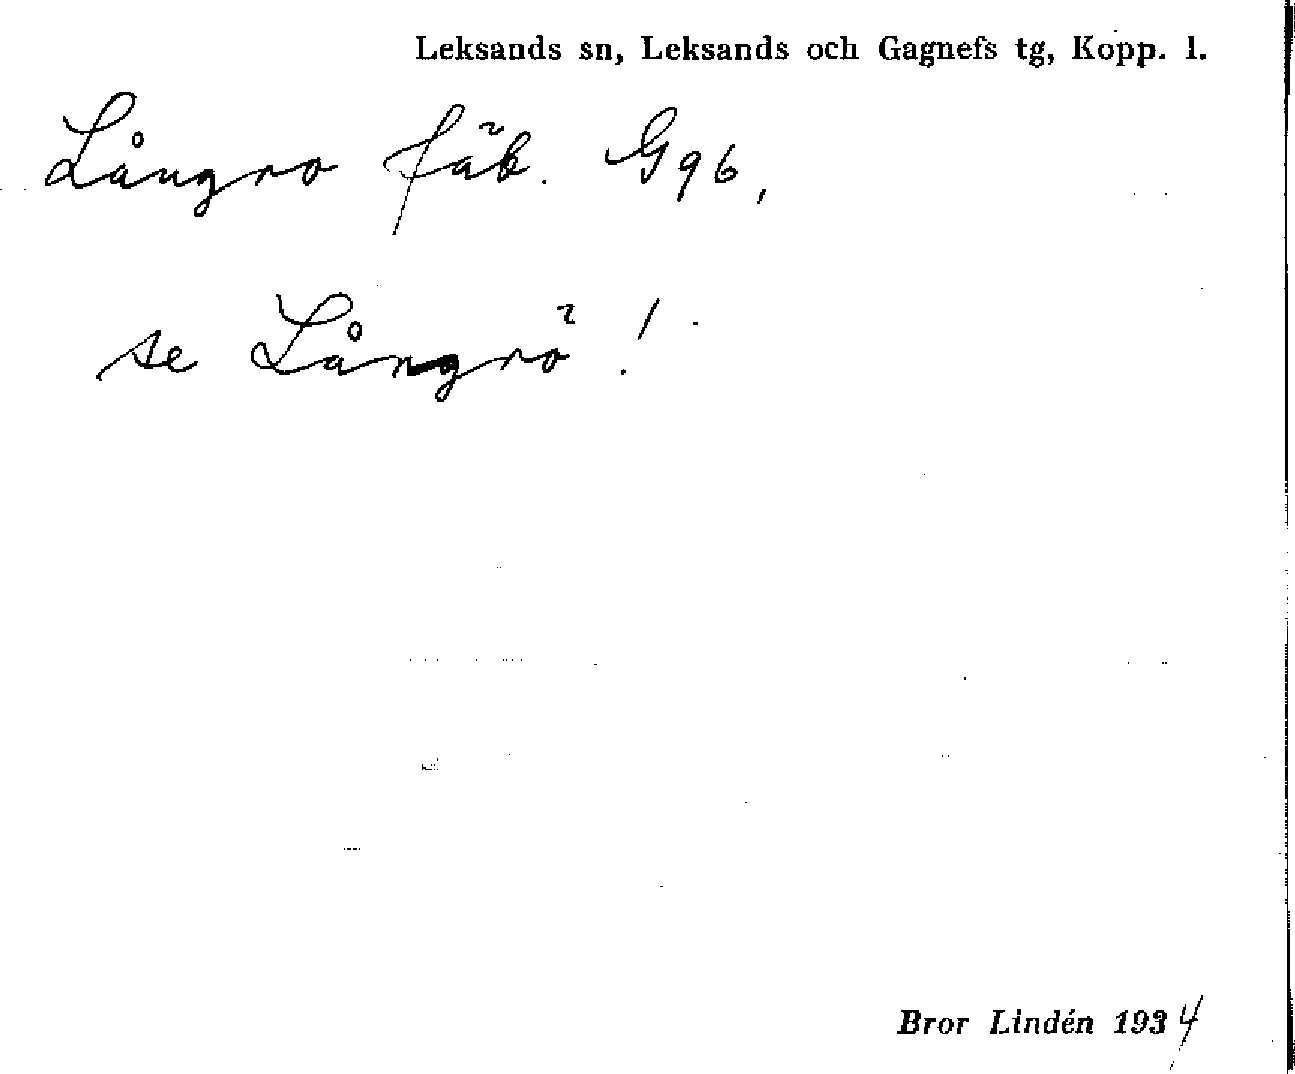 Leksands sn, Leksands och Gagnefs tg, Kopp. l.
Långro fäb. G96,
se Långrö!
Bror Lindén 1934